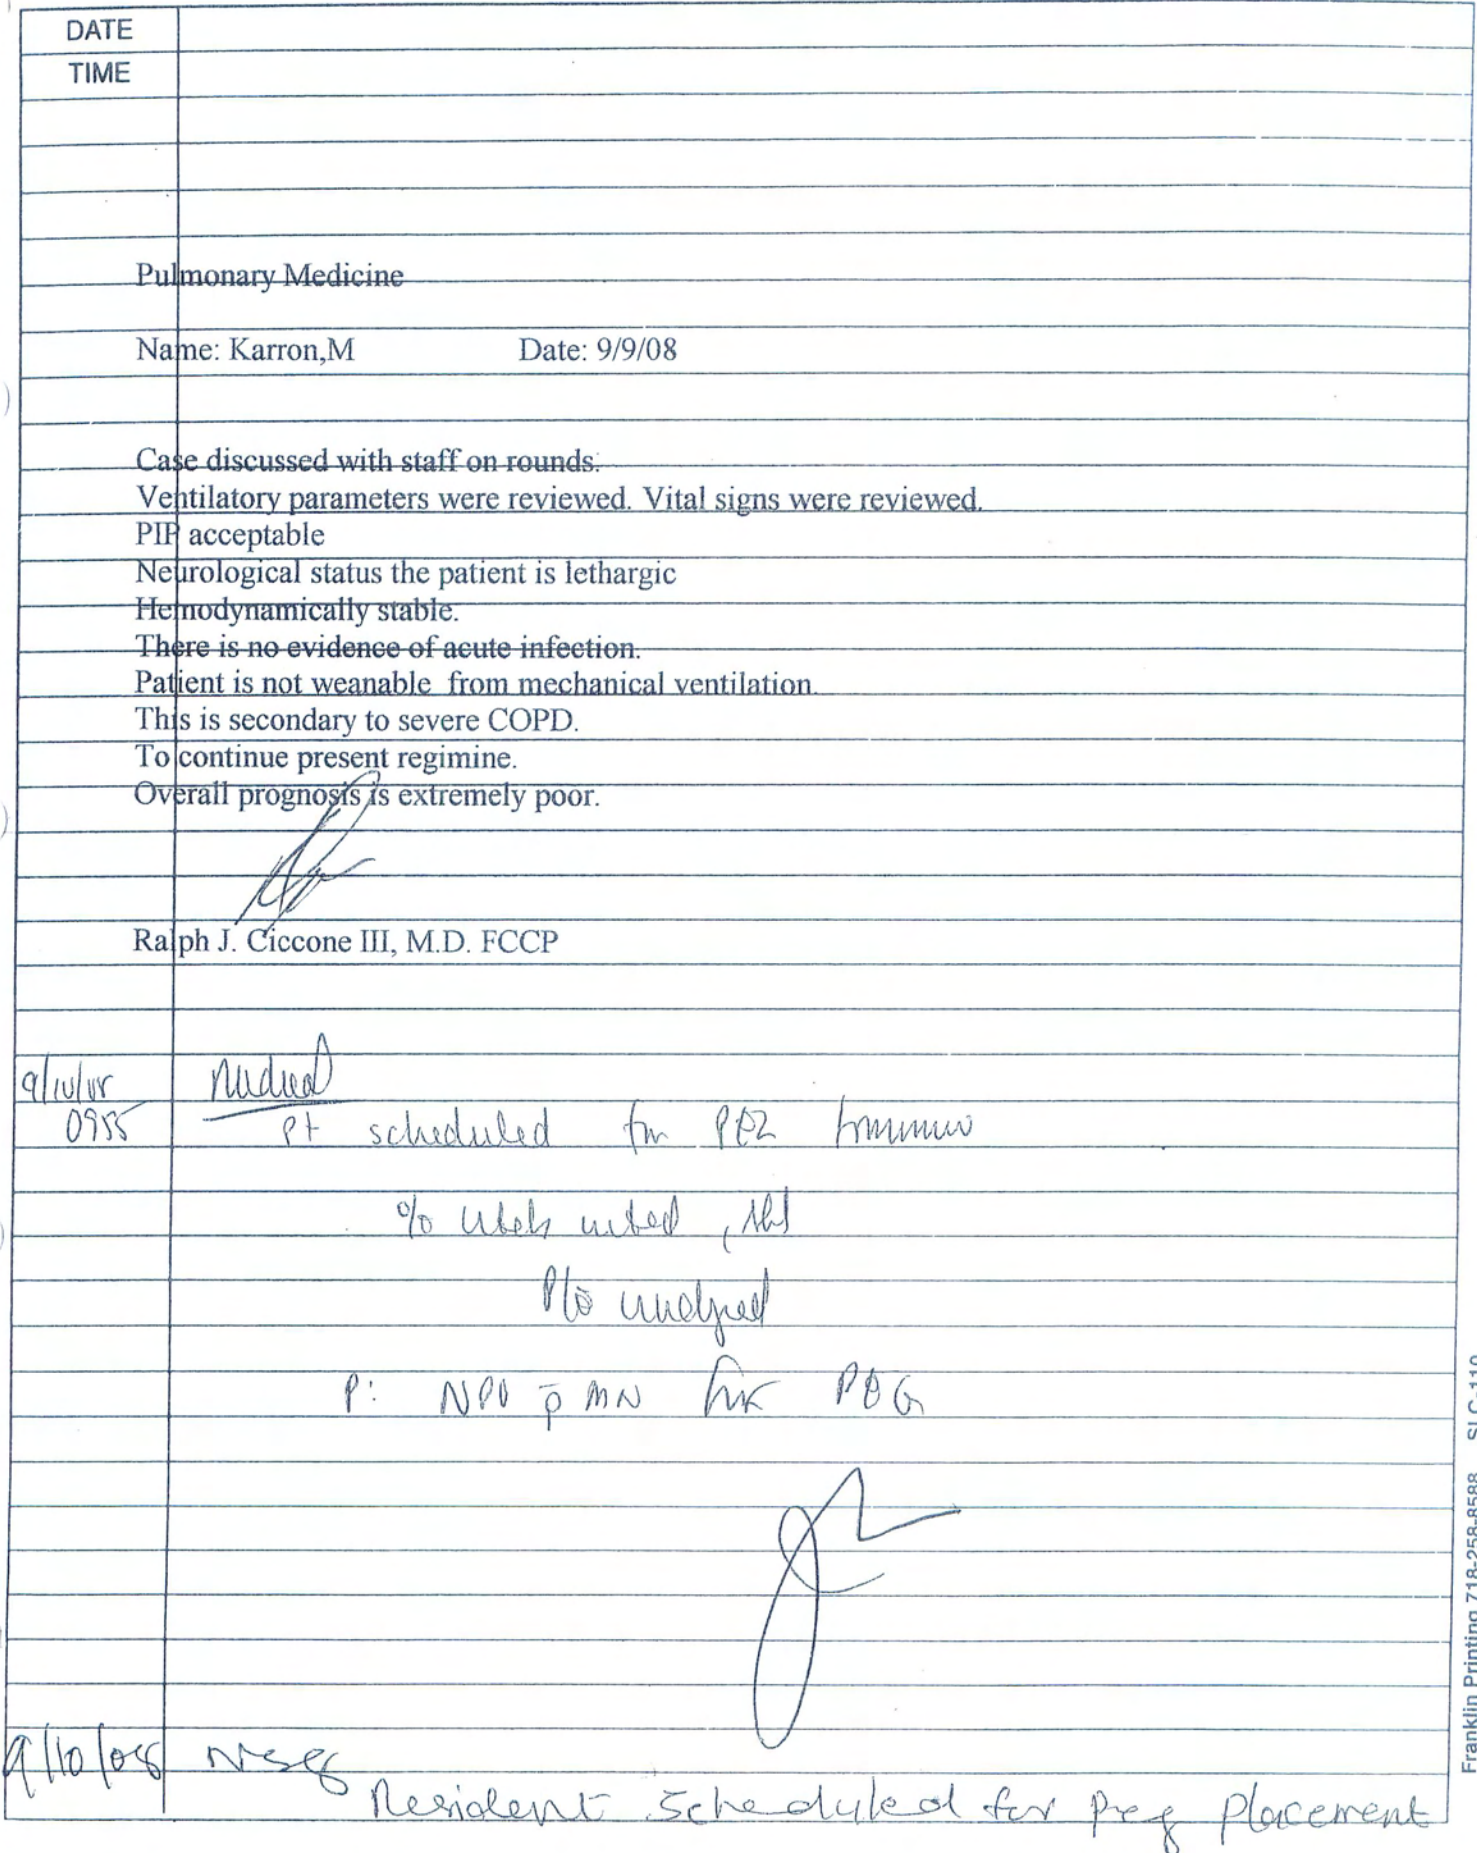 DATE
TIME
Pulmonary Medicine
Name: Karron,M Date: 9/9/08
Case discussed with staff on rounds.
Ventilatory parameters were reviewed. Vital signs were reviewed.
PIP acceptable
Neurological status the patient is lethargic
Hemodynamically stable.
There is no evidence of acute infection.
Patient is not weanable from mechanical ventilation.
This is secondary to severe COPD.
To continue present regimine.
Overall prognosis is extremely poor.
Ralph J. Ciccone III, M.D. FCCP
9/10/08 Medical
0955 pt scheduled for PEG
P: NPO p̄ MN for PEG
9/10/08 NSG
Resident scheduled for Peg placement
Franklin Printing 718-258-8588 SLC-110